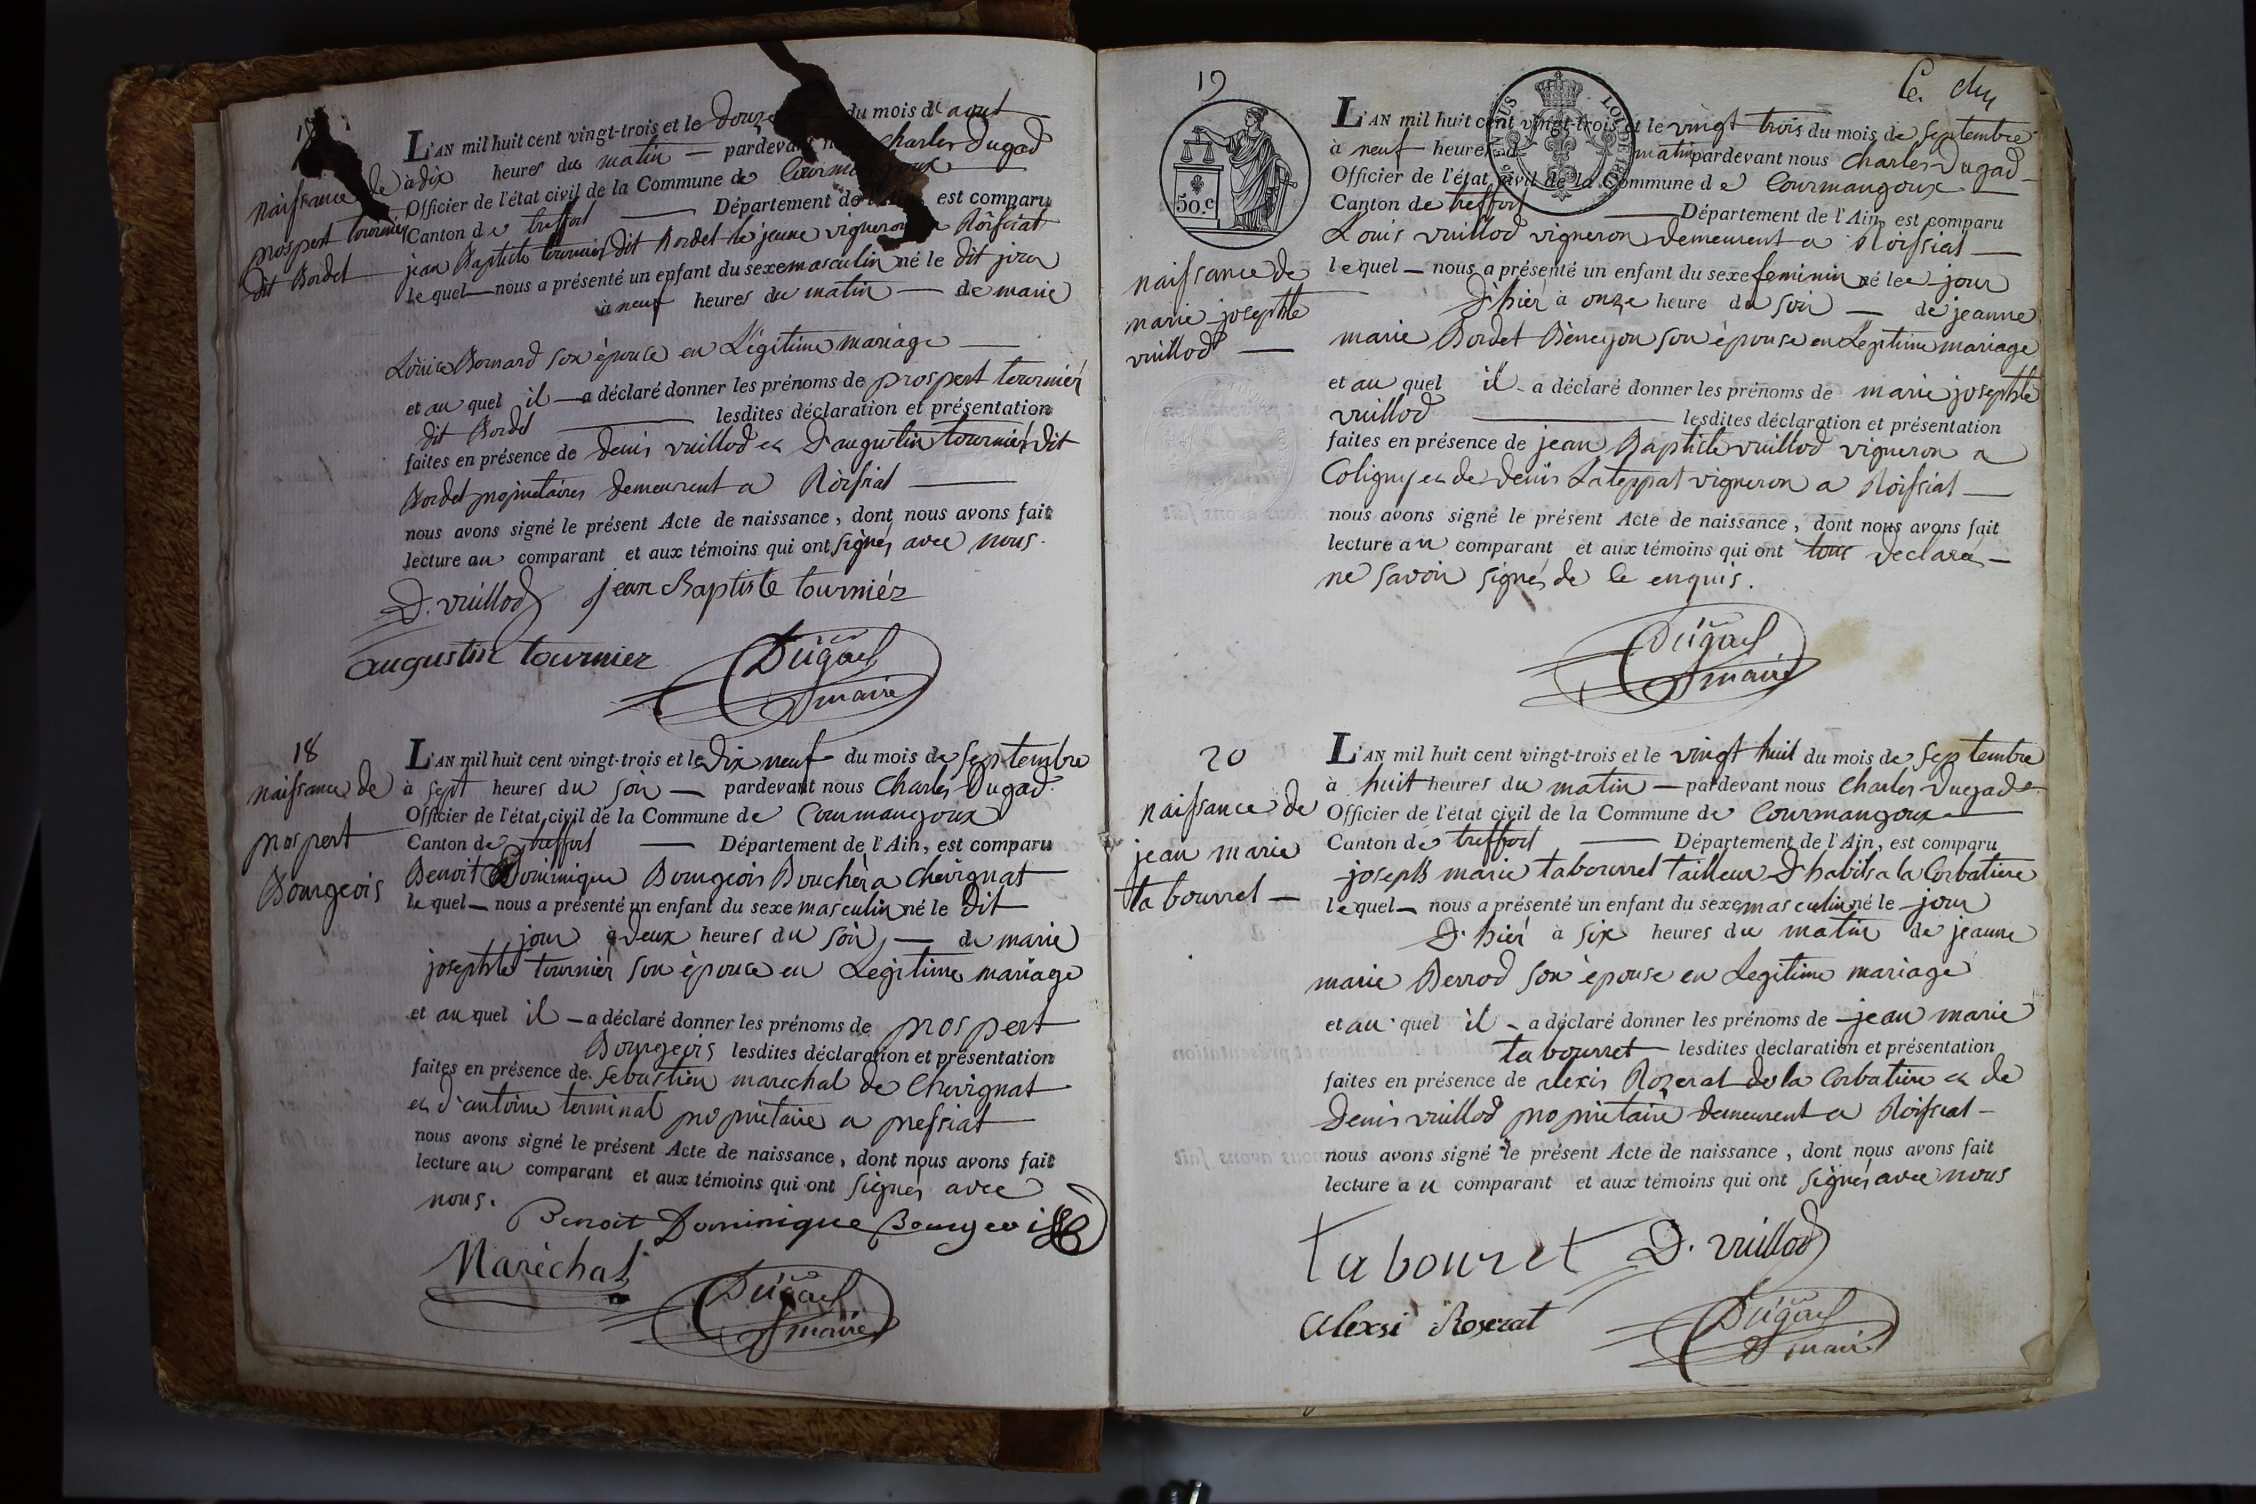 naissance de
prospert tournier
dit Bordet
L'AN mil huit cent vingt-trois et le douze du mois d'aout
à dix heures du matin — pardevant nous Charles Dugad
Officier de l'état civil de la Commune de Courmangoux
Canton de treffort — Département de l'Ain, est comparu
jean Baptiste tournier dit Bordet le jeune vigneron a Roissiat
lequel — nous a présenté un enfant du sexe masculin né le dit jour
à neuf heures du matin — de marie
Louise Bornard son épouse en Légitime mariage —
et au quel il — a déclaré donner les prénoms de prospert tournier
dit Bordet — lesdites déclaration et présentation
faites en présence de denis vuillod et d'augustin tournier dit
Bordet proprietaires demeurent a Roissiat —
nous avons signé le présent Acte de naissance, dont nous avons fait
lecture au comparant et aux témoins qui ont signés avec nous.
D. vuillod jean Baptiste tourniér
augustin tournier Dugad
maire
18
naissance de
prospert
Bourgeois
L'AN mil huit cent vingt-trois et le dix neuf du mois de septembre
à sept heures du soir — pardevant nous Charles Dugad
Officier de l'état civil de la Commune de Courmangoux
Canton de treffort — Département de l'Ain, est comparu
Benoit Dominique Bourgeois Boucher a chevignat
lequel — nous a présenté un enfant du sexe masculin né le dit
jour a deux heures du soir — de marie
josephte tournier son épouse en Legitime mariage
et au quel il — a déclaré donner les prénoms de prospert
Bourgeois lesdites déclaration et présentation
faites en présence de sebastien marechal de Chevignat
et d'antoine terminal proprietaire a pressiat
nous avons signé le présent Acte de naissance, dont nous avons fait
lecture au comparant et aux témoins qui ont signés avec
nous.
Benoit Dominique Bourgeois
Maréchal Dugad
maire
19
50.c
naissance de
marie josephte
vuillod —
L'AN mil huit cent vingt-trois et le vingt trois du mois de septembre
à neuf heures du matin pardevant nous Charles Dugad
Officier de l'état civil de la Commune de Courmangoux
Canton de treffort — Département de l'Ain, est comparu
Louis vuillod vigneron demeurent a Roissiat —
lequel — nous a présenté un enfant du sexe feminin né le jour
d'hier à onze heure du soir — de jeanne
marie Bordet Beneyon son épouse en Legitime mariage
et au quel il — a déclaré donner les prénoms de marie josephte
vuillod — lesdites déclaration et présentation
faites en présence de jean Baptiste vuillod vigneron a
Coligny et de denis Lateppat vigneron a Roissiat —
nous avons signé le présent Acte de naissance, dont nous avons fait
lecture au comparant et aux témoins qui ont tous declara —
ne savoir signés de ce enquis.
Dugad
maire
20
naissance de
jean marie
tabourret —
L'AN mil huit cent vingt-trois et le vingt huit du mois de septembre
à huit heures du matin — pardevant nous Charles Dugad
Officier de l'état civil de la Commune de Courmangoux —
Canton de treffort — Département de l'Ain, est comparu
joseph marie tabourret tailleur d'habits a la Corbatiere
lequel — nous a présenté un enfant du sexe masculin né le jour
d'hier à six heures du matin de jeanne
marie Berrod son épouse en Legitime mariage
et au quel il — a déclaré donner les prénoms de jean marie
tabourret — lesdites déclaration et présentation
faites en présence de alexis Rozerat de la Corbatiere et de
Denis vuillod proprietaire demeurent a Roissiat —
nous avons signé le présent Acte de naissance, dont nous avons fait
lecture au comparant et aux témoins qui ont signés avec nous
tabouret D. vuillod
alexsi Roserat Dugad
maire